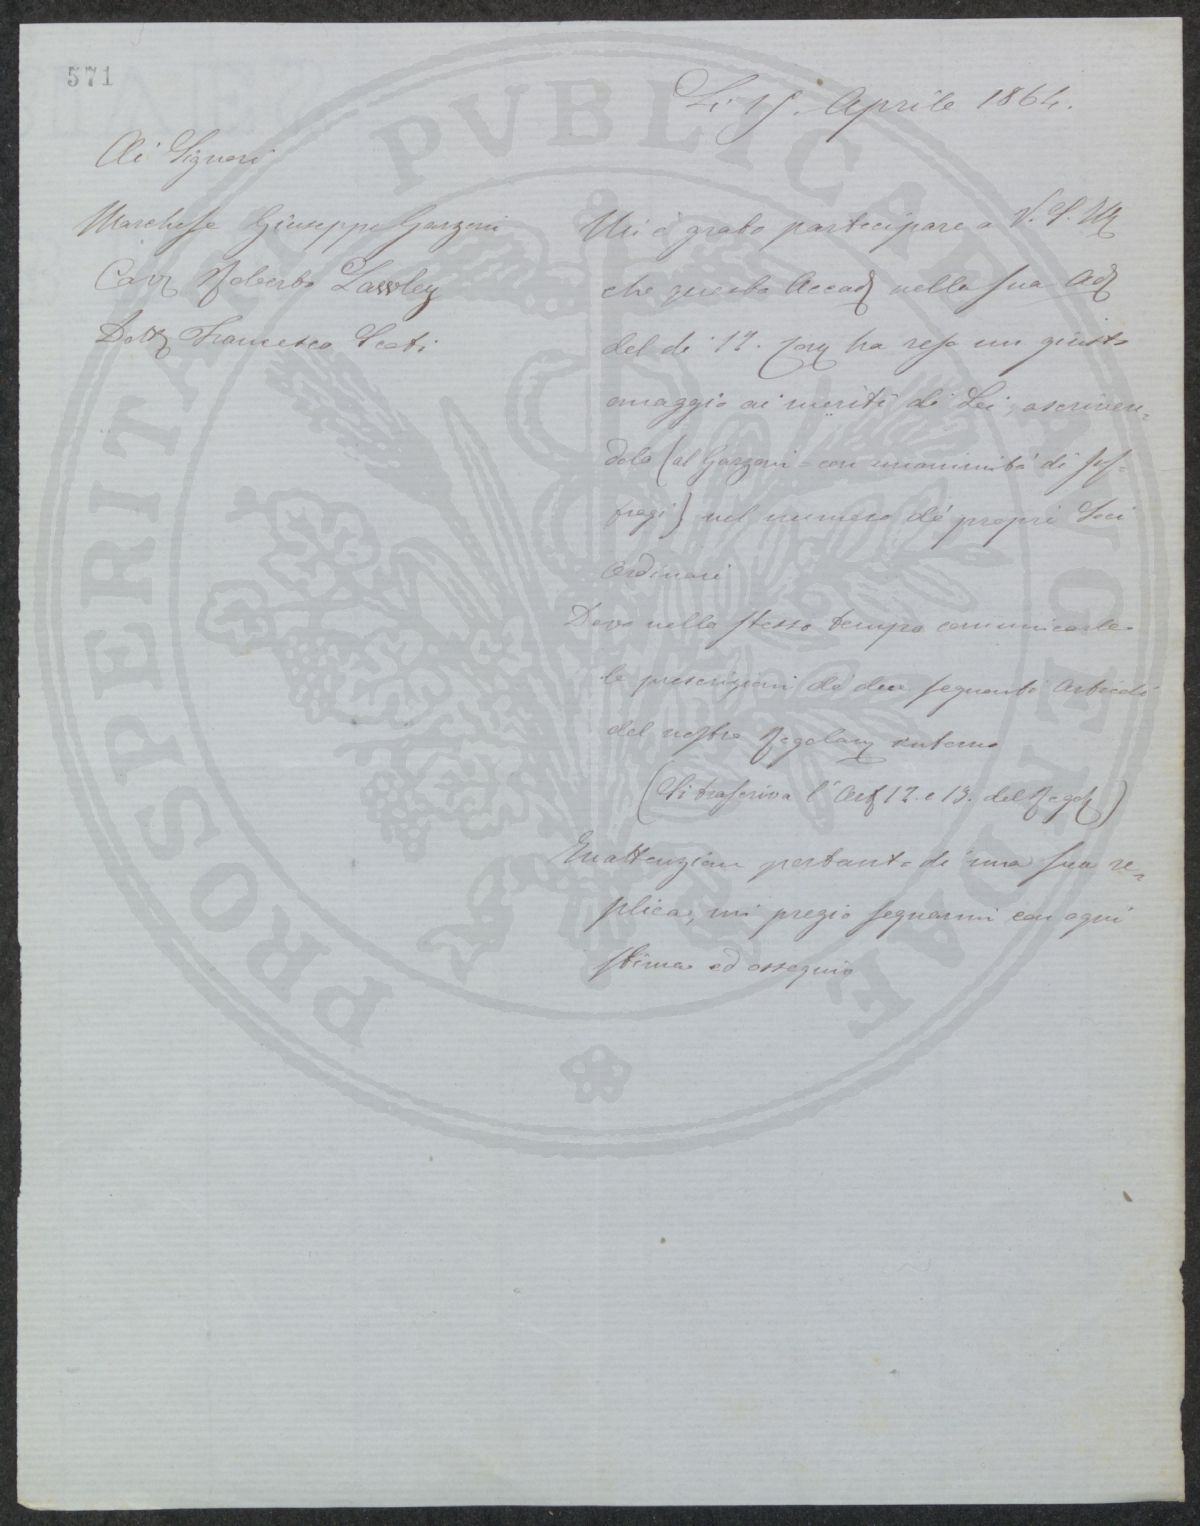 571
Li 15. Aprile 1864.
Ai Signori
Marchese Giuseppe Garzoni
Cav Roberto Lawley
Dott Francesco Scoti
Mi è grato partecipare a V. S. Ill
che questa Accad nella sua Ad
del di 17. Corr ha reso un giusto
omaggio ai meriti di Lei, ascriven=
dola (al Garzoni - con unanimità di suf=
fragi) nel numero de' propri Soci
Ordinari
Devo nello stesso tempo comunicarle
le prescrizioni de' due seguenti Articoli
del nostro Regolam interno
(Si trascriva l'Art 12. e 13. del Regol)
In attenzione pertanto di una sua re=
plica, mi pregio segnarmi con ogni
stima ed ossequio
PROSPERITATI PVBLICAE AVGENDAE